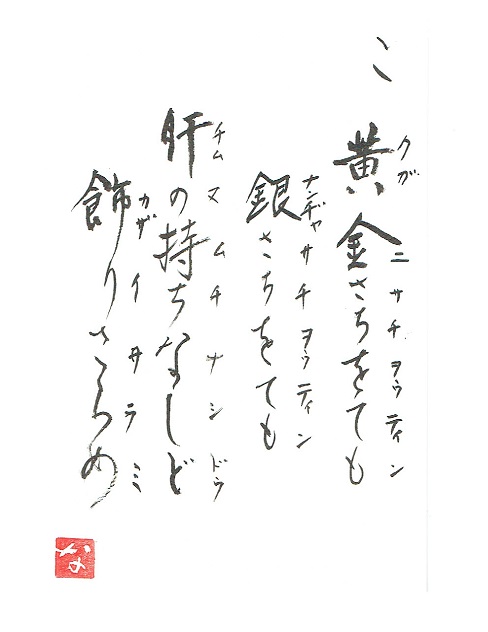 こ
黄金さちをても
クガニサチヲゥティン
銀さちをても
ナンヂャサチヲゥティン
肝の持ちなしど
チムヌムチナシドゥ
飾りさらめ
カザイサラミ
な